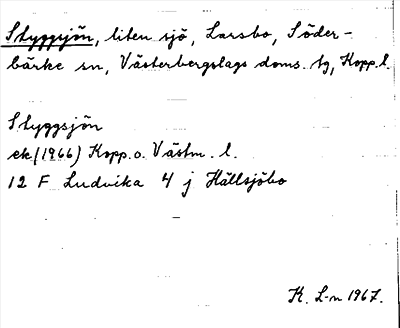 Styggsjön, liten sjö, Larsbo, Söder-
bärke sn, Västerbergslags doms. tg, Kopp.l.
Styggsjön
ek. (1966) Kopp. o. Västm. l.
12 F Ludvika 4 j Hällsjöbo
K. L-n 1967.